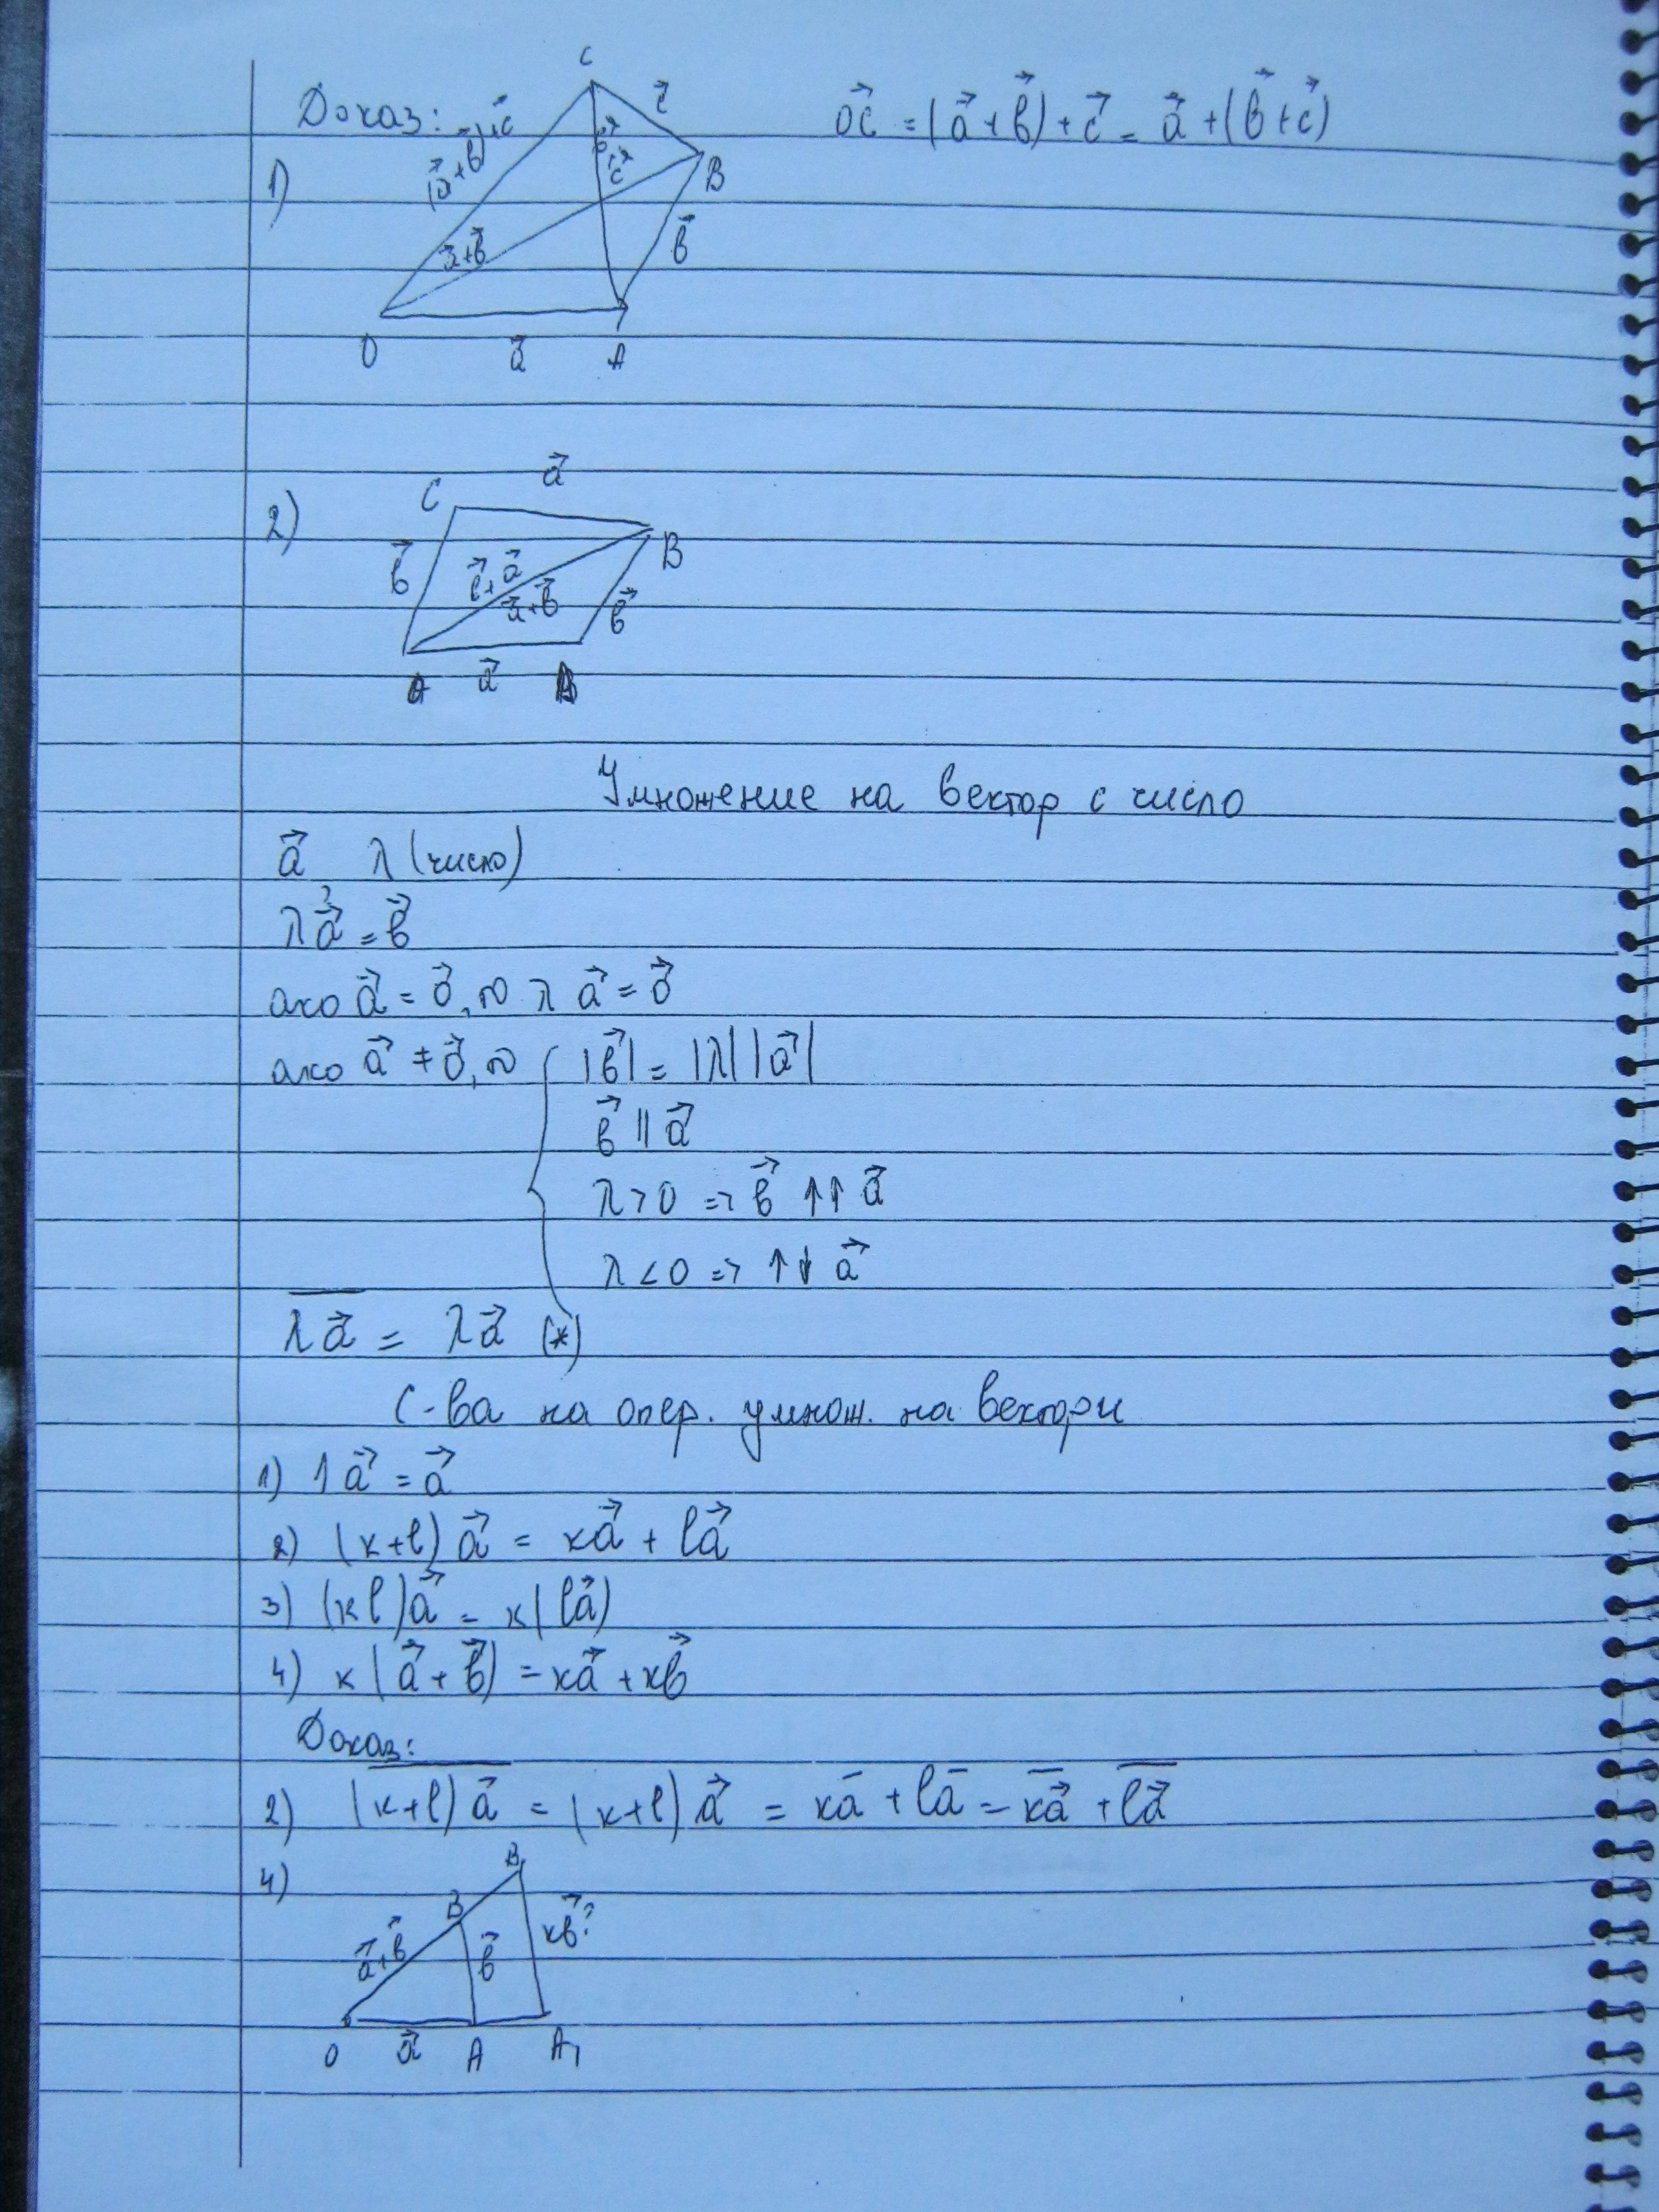 Доказ:
1)
C
c⃗
(a⃗+b⃗)+c⃗
b⃗+c⃗
B
a⃗+b⃗
b⃗
O a⃗ A
OC⃗ = (a⃗+в⃗)+c⃗ = a⃗+(в⃗+c⃗)
2)
C a⃗
B
в⃗ в⃗+a⃗
a⃗+в⃗ в⃗
a⃗
Умножение на вектор с число
a⃗ λ (число)
?
λa⃗ = в⃗
ако a⃗ = o⃗, то λ a⃗ = o⃗
ако a⃗ ≠ o⃗, то { |в⃗| = |λ||a⃗|
в⃗ || a⃗
λ>0 => в⃗ ↑↑ a⃗
λ<0 => ↑↓ a⃗
λa⃗ = λa⃗ (*)
С-ва на опер. умнож. на вектори
1) 1a⃗ = a⃗
2) (к+l) a⃗ = кa⃗ + la⃗
3) (кl)a⃗ = к(la⃗)
4) к(a⃗+в⃗) = кa⃗ + кв⃗
Доказ:
2) (к+l) a⃗ = (к+l) a⃗ = кā + lā = кa⃗ + la⃗
4)
B₁
B
a⃗+в⃗ в⃗ кв⃗?
O a⃗ A A₁